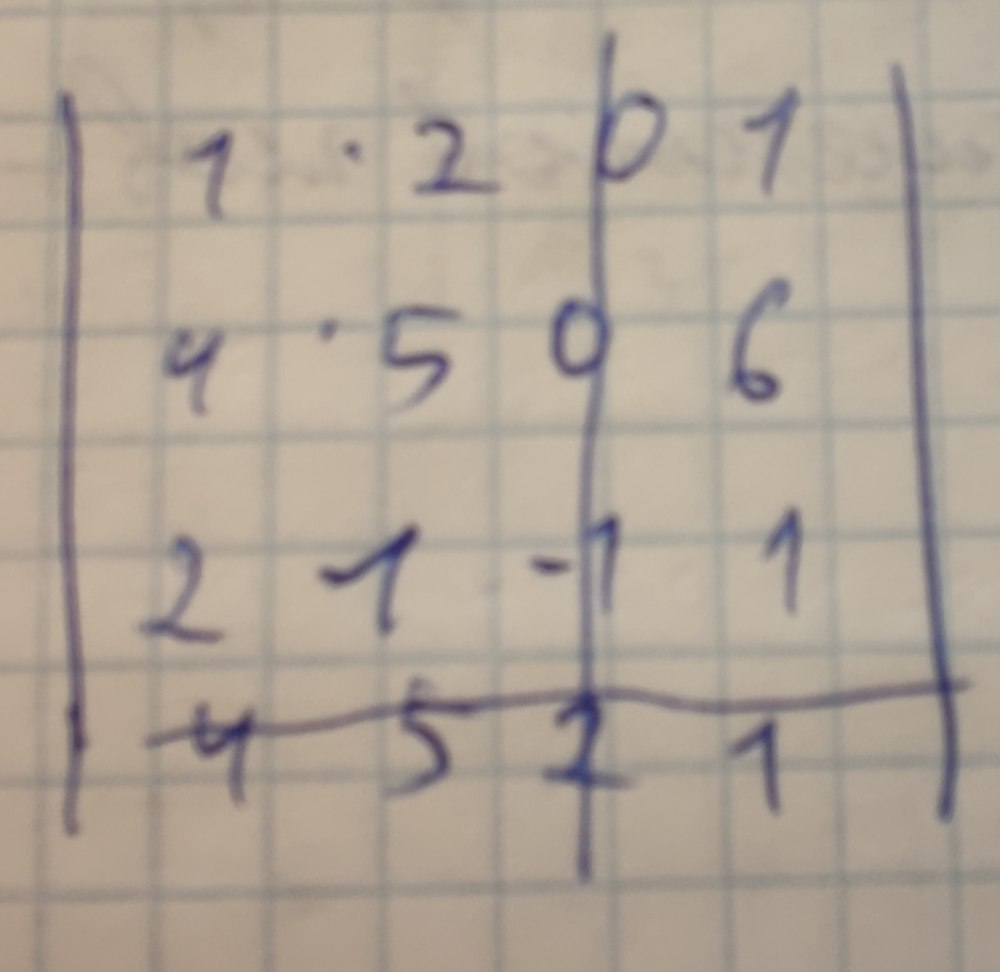 1 · 2 0 1
4 · 5 0 6
2 -1 -1 1
4 5 2 1